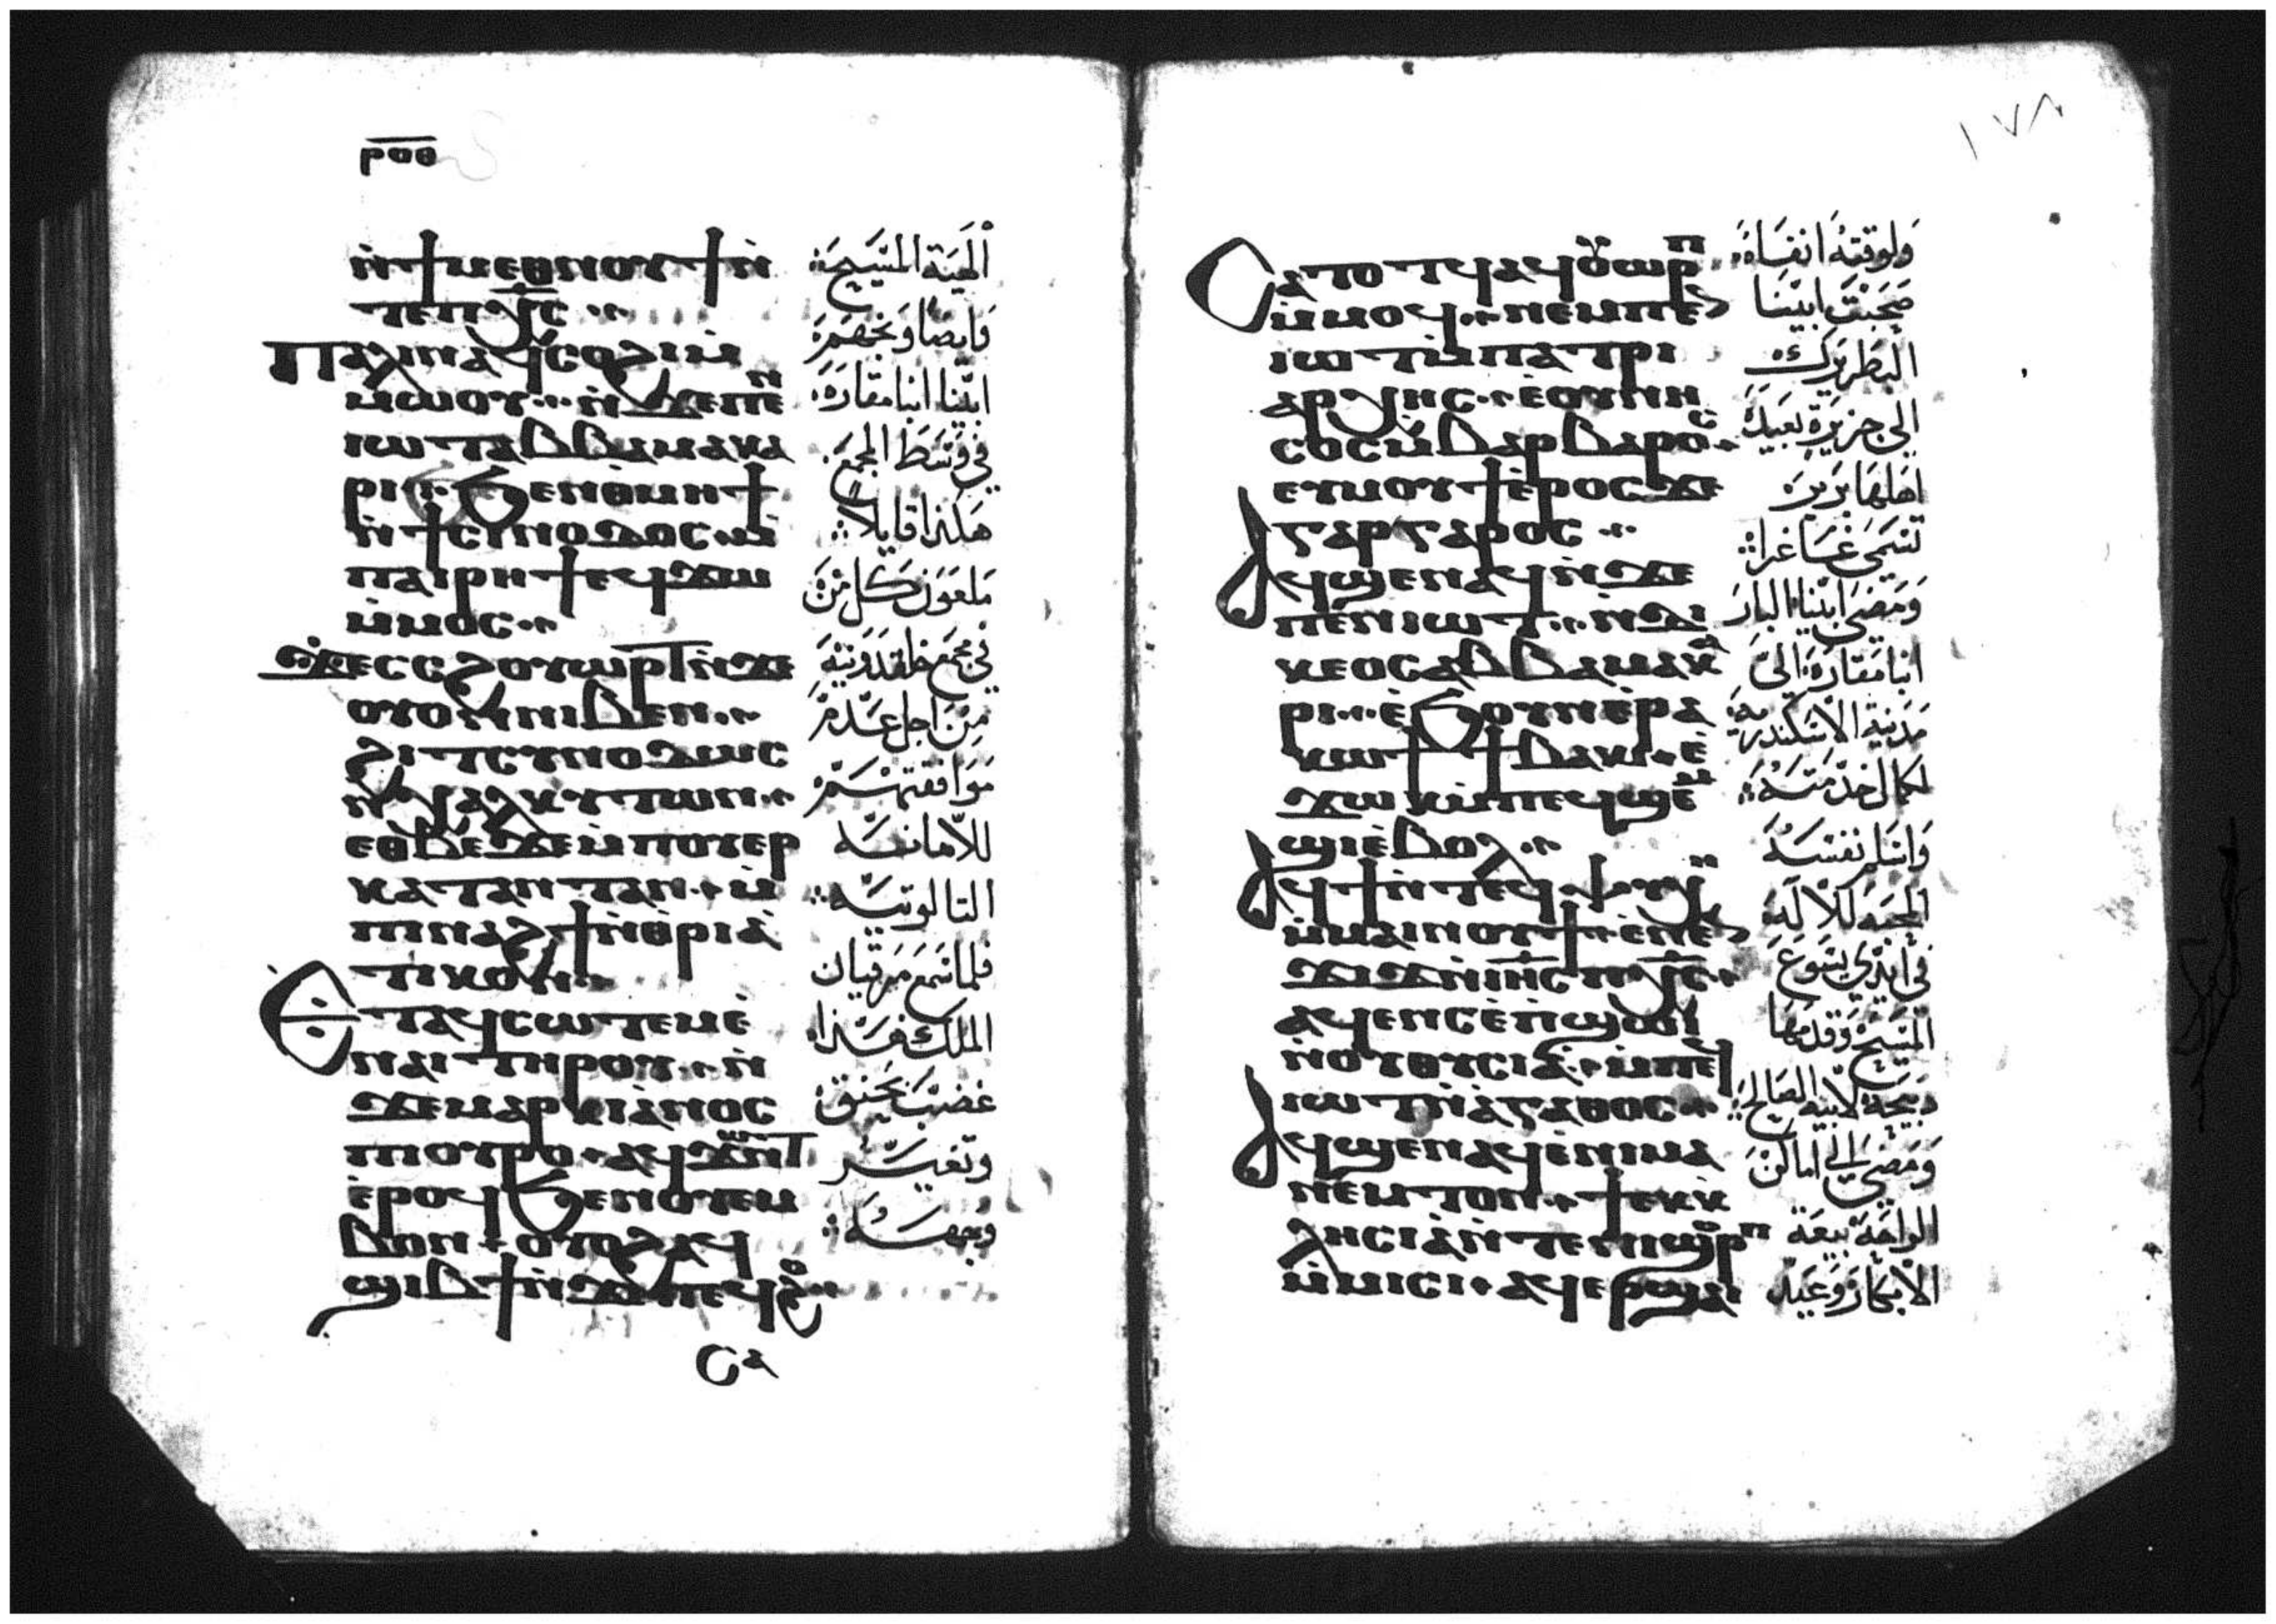 ⲣⲟⲑ
ⲛ̀ϯⲙⲉⲑⲛⲟⲩϯ ⲛ̀
ⲧⲉⲡⲭ̅ⲥ̅
Ⲡⲁⲗⲓⲛ ⲁϥⲥⲟϩⲓ ⲙ̀
ⲙⲱⲟⲩ ⲛ̀ϫⲉⲡⲉⲛ
ⲓⲱⲧ ⲁⲃⲃⲁ ⲙⲁⲕⲁ
ⲣⲓ ϧⲉⲛ ⲑⲙⲏϯ
ⲛ̀ϯⲥⲓⲛⲟⲇⲟⲥ ⲙ̀
ⲡⲁⲓⲣⲏϯ ⲉϥϫⲱ
ⲙ̀ⲙⲟⲥ
Ϫⲉ ⲥⲥϩⲟⲩⲱⲣⲧ ⲛ̀ϫⲉ
ⲟⲩⲟⲛ ⲛⲓⲃⲉⲛ
ϩⲓ ⲧⲥⲩⲛⲟⲇⲱⲥ
ⲛ̀ⲭⲁⲗⲕⲩⲧⲱⲛ
ⲉⲑⲃⲉ ϫⲉ ⲙ̀ⲡⲟⲩⲉⲣ
ⲕⲁⲧⲁⲛⲧⲁⲛ ⲙ̀
ⲡⲓⲛⲁϩϯ ⲛ̀ⲑⲣⲓⲁ̀
ⲧⲓⲕⲟⲛ
Ⲉⲧⲁϥⲥⲱⲧⲉⲙ ⲉ̀
ⲛⲁⲓ ⲧⲏⲣⲟⲩ ⲛ̀
ϫⲉ ⲙⲁⲣⲕⲓⲁⲛⲟⲥ
ⲡⲟⲩⲣⲟ ⲁϥϫⲱⲛⲧ
ⲉ̀ⲣⲟϥ ϧⲉⲛ ⲟⲩⲉⲙ
ⲃⲟⲛ ⲟⲩⲟϩ ⲁϥ
ϣⲓⲃϯ ⲛ̀ϫⲉ ⲡⲉϥϩⲟ
ⲥⲁ
ألهية المسيح
وايضا وبخهم
ابينا انبا مقاره
في وسط المجمع
هكذا قايلا
ملعون كل من
في مجمع خلقدونية
من اجل عدم
موافقتهم
للامانة
التالوتية
فلما سمع مرقيان
الملك هذا
غضب بحنق
وتغير
وجهه
١٧٨
Ⲥⲁⲧⲟⲧϥ ⲁϥⲟⲩⲱⲣⲡ
ⲙ̀ⲙⲟϥ ⲛⲉⲙ ⲡⲉⲛ
ⲓⲱⲧ ⲙ̀ⲡⲁⲧⲣⲓ
ⲁⲣⲭⲏⲥ ⲉⲟⲩⲛⲏ
ⲥⲟⲥ ⲙ̀ⲃⲁⲣⲃⲁⲣⲟⲥ
ⲉⲩⲙⲟⲩϯ ⲉ̀ⲣⲟⲥ ϫⲉ
ⲅⲁⲣⲅⲁⲣⲟⲥ
Ⲁϥϣⲉⲛⲁϥ ⲛ̀ϫⲉ
ⲡⲉⲛⲓⲱⲧ ⲛ̀ⲇⲓ
ⲕⲉⲟⲥ ⲁⲃⲃⲁ ⲙⲁⲕⲁ
ⲣⲓ ⲉ̀ϧⲟⲩⲛ ⲉ̀ⲣⲁ
ⲕⲱϯ ϯⲃⲁⲕⲓ ⲉ̀
ϫⲱⲕ ⲙ̀ⲡⲉϥϣⲉⲙ
ϣⲓ ⲉ̀ⲃⲟⲗ
Ⲁϥϯ ⲛ̀ⲧⲉϥⲯⲩⲭⲏ
ⲙ̀ⲙⲁⲓⲛⲟⲩϯ ⲉⲛⲉⲛ
ϫⲓϫ ⲛ̀ⲓⲏⲥ ⲡⲭ̅ⲥ̅
ⲁϥⲉⲛⲥ ⲉ̀ⲡϣⲱⲓ
ⲛ̀ⲟⲩⲑⲩⲥⲓⲁ ⲙ̀ⲡⲉϥ
ⲓⲱⲧ ⲛ̀ⲁⲅⲁⲑⲟⲥ
Ⲁϥϣⲉⲛⲁϥ ⲉ̀ⲛⲓⲙⲁ
ⲛ̀ⲉⲙⲧⲟⲛ ϯⲉⲕⲕ
ⲗⲏⲥⲓⲁ ⲛ̀ⲧⲉ ⲛⲓϣⲟⲣⲡ
ⲙ̀ⲙⲓⲥⲓ ⲁϥⲉⲣϣⲁⲓ
ولوقته انفاه
صحبت ابينا
البطريرك
الى جزيرة بعيدة
اهلها بربر
تسمى غاغرا
ومضى ابينا البار
انبا مقاره الى
مدينة الاسكندرية
لكمال خدمته
واسلم نفسه
المحبة للاله
في أيدي يسوع
المسيح وقدمها
ذبيحة لابيه الصالح
ومضى الى اماكن
الراحة بيعة
الابكار وعيد